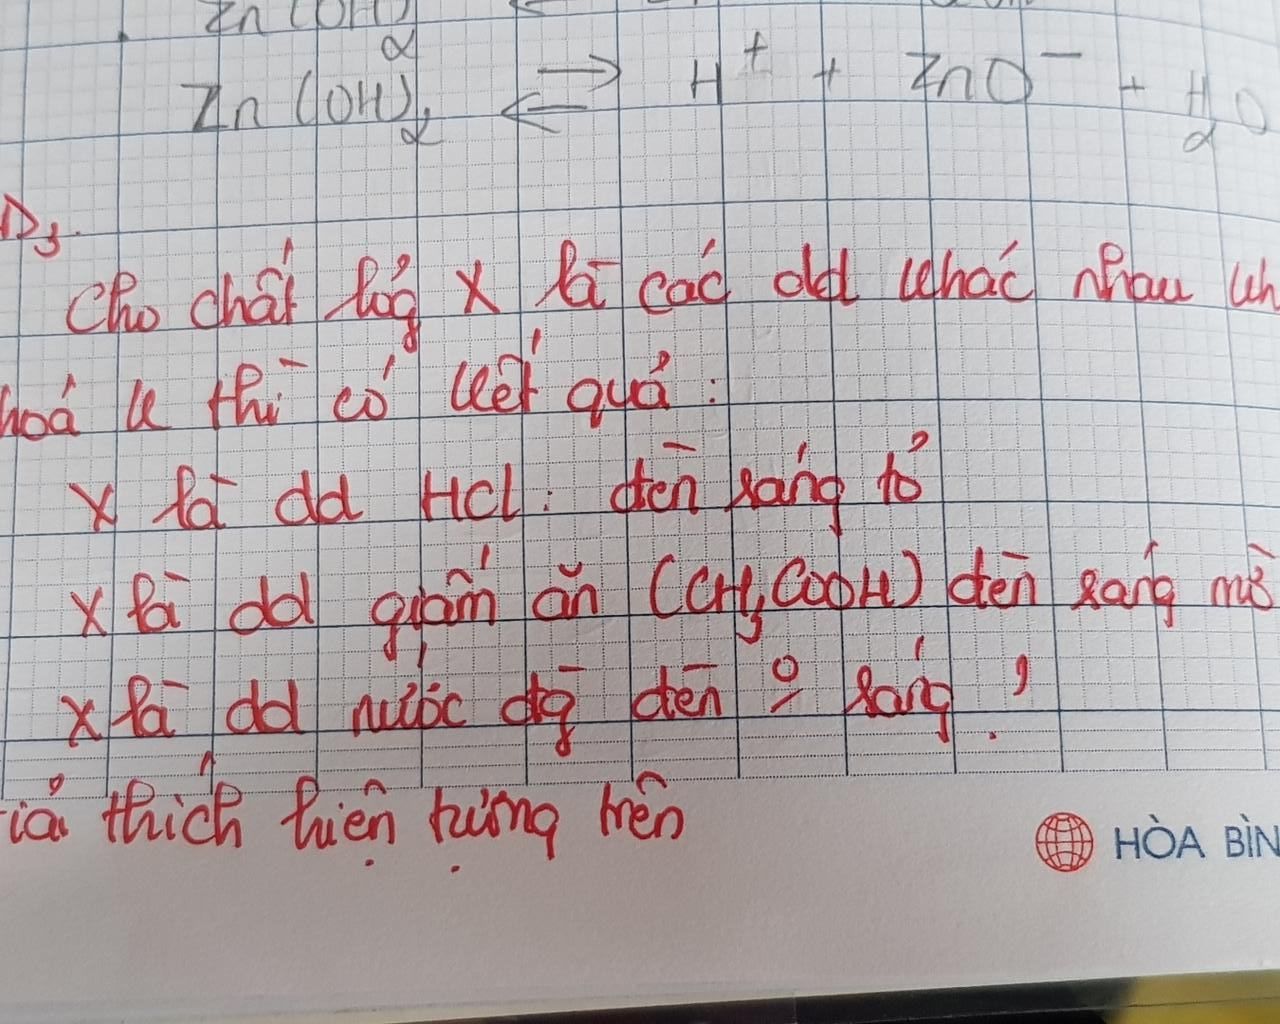 Zn(OH)₂
Zn(OH)₂ ⇌ H⁺ + ZnO⁻ + H₂O
D₃.
Cho chất lỏg X là các dd khác nhau kh
hoá K thì có kết quả:
X là dd HCl: đèn sáng tỏ
X là dd giấm ăn (CH₃COOH) đèn sáng mờ
X là dd nước đg đèn sáng.
iải thích hiện tượng trên
HÒA BÌN